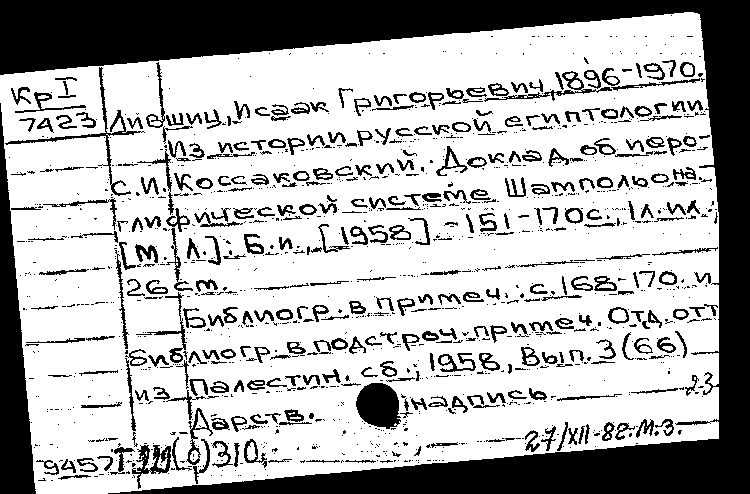 КрI
7423
Лившиц, Исаак Григорьевич, 1896-1970.
Из истории русской египтологии
С.И. Коссаковский. Доклад об иеро-
глифической системе Шампольона.
[М. Л.]: Б.и., [1958] - 151-170с., 1л.ил.;
26 cm.
Библиогр. в примеч.: с.168-170. и
библиогр. в подстроч. примеч. Отд. отт
из Палестин. сб., 1958, Вып. 3 (66)
23
Дарств. надпись.
27/XII-82. М.З.
9457 (с)310.